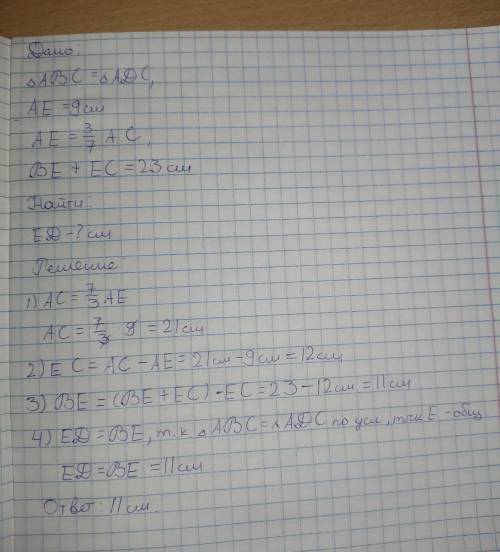 Дано:
△ABC = △ADC,
AE = 9 см
AE = 3/7 AC,
BE + EC = 23 см
Найти:
ED - ? см
Решение
1) AC = 7/3 AE
AC = 7/3 · 9 = 21 см
2) EC = AC - AE = 21 см - 9 см = 12 см
3) BE = (BE + EC) - EC = 23 - 12 см = 11 см
4) ED = BE, т.к △ABC = △ADC по усл, тчк E - общ.
ED = BE = 11 см
Ответ: 11 см.